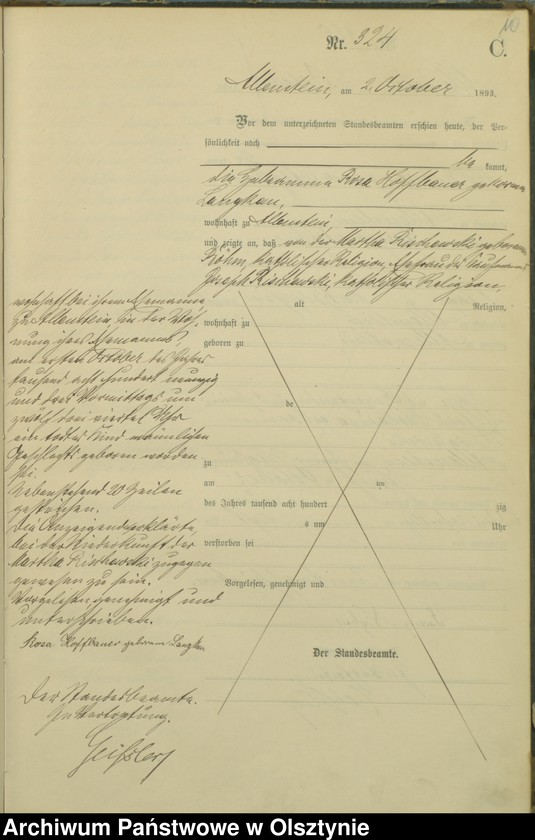 10
Nr. 324
C.
Allenstein, am 2. October 1893.
Vor dem unterzeichneten Standesbeamten erschien heute, der Per-
sönlichkeit nach
be kannt,
die Hebeamme Rosa Hoffbauer geborene
Langkau,
wohnhaft zu Allenstein,
und zeigte an, daß von der Martha Rischewski geborene
Böhm, katholischer Religion, Ehefrau des
Joseph Rischewski, katholischer Religion,
alt Religion,
wohnhaft zu
geboren zu
de
zu
am im
des Jahres tausend acht hundert zig
s um Uhr
verstorben sei
Vorgelesen, genehmigt und
Der Standesbeamte.
wohnhaft bei ihrem Ehemanne
zu Allenstein in der Woh-
nung ihres Ehemannes,
am ersten October des Jahres
tausend acht hundert neunzig
und drei Vormittags um
zwölf drei viertel Uhr
ein todtes Kind männlichen
Geschlechts geboren worden
sei.
Nebenstehend 20 Zeilen
gestrichen.
Die Anzeigende erklärte
bei der Niederkunft der
Martha Rischewski zugegen
gewesen zu sein.
Vorgelesen genehmigt und
unterschrieben.
Rosa Hoffbauer geborene Langkau
Der Standesbeamte.
In Vertretung.
Archiwum Państwowe w Olsztynie